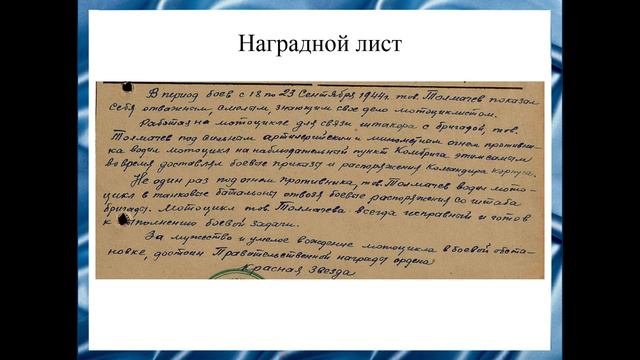 Наградной лист
В период боев с 18 по 23 Сентября 1944 г. тов. Толмачев показал
себя отважным смелым, знающим свое дело мотоциклистом.
Работая на мотоцикле для связи штакора с бригадой, тов.
Толмачев под сильным артиллерийским и минометным огнем противни-
ка водил мотоцикл на наблюдательной пункт Комбрига этим самым
во время доставлял боевые приказы и распоряжения Командира корпуса.
Не один раз под огнем противника, тов. Толмачев водил мото-
цикл в танковые батальоны отвозя боевые распоряжения со штаба
бригады. Мотоцикл тов. Толмачева всегда исправный и готов
к выполнению боевой задачи.
За мужество и умелое вождение мотоцикла в боевой обста-
новке, достоин Правительственной награды ордена
Красная Звезда